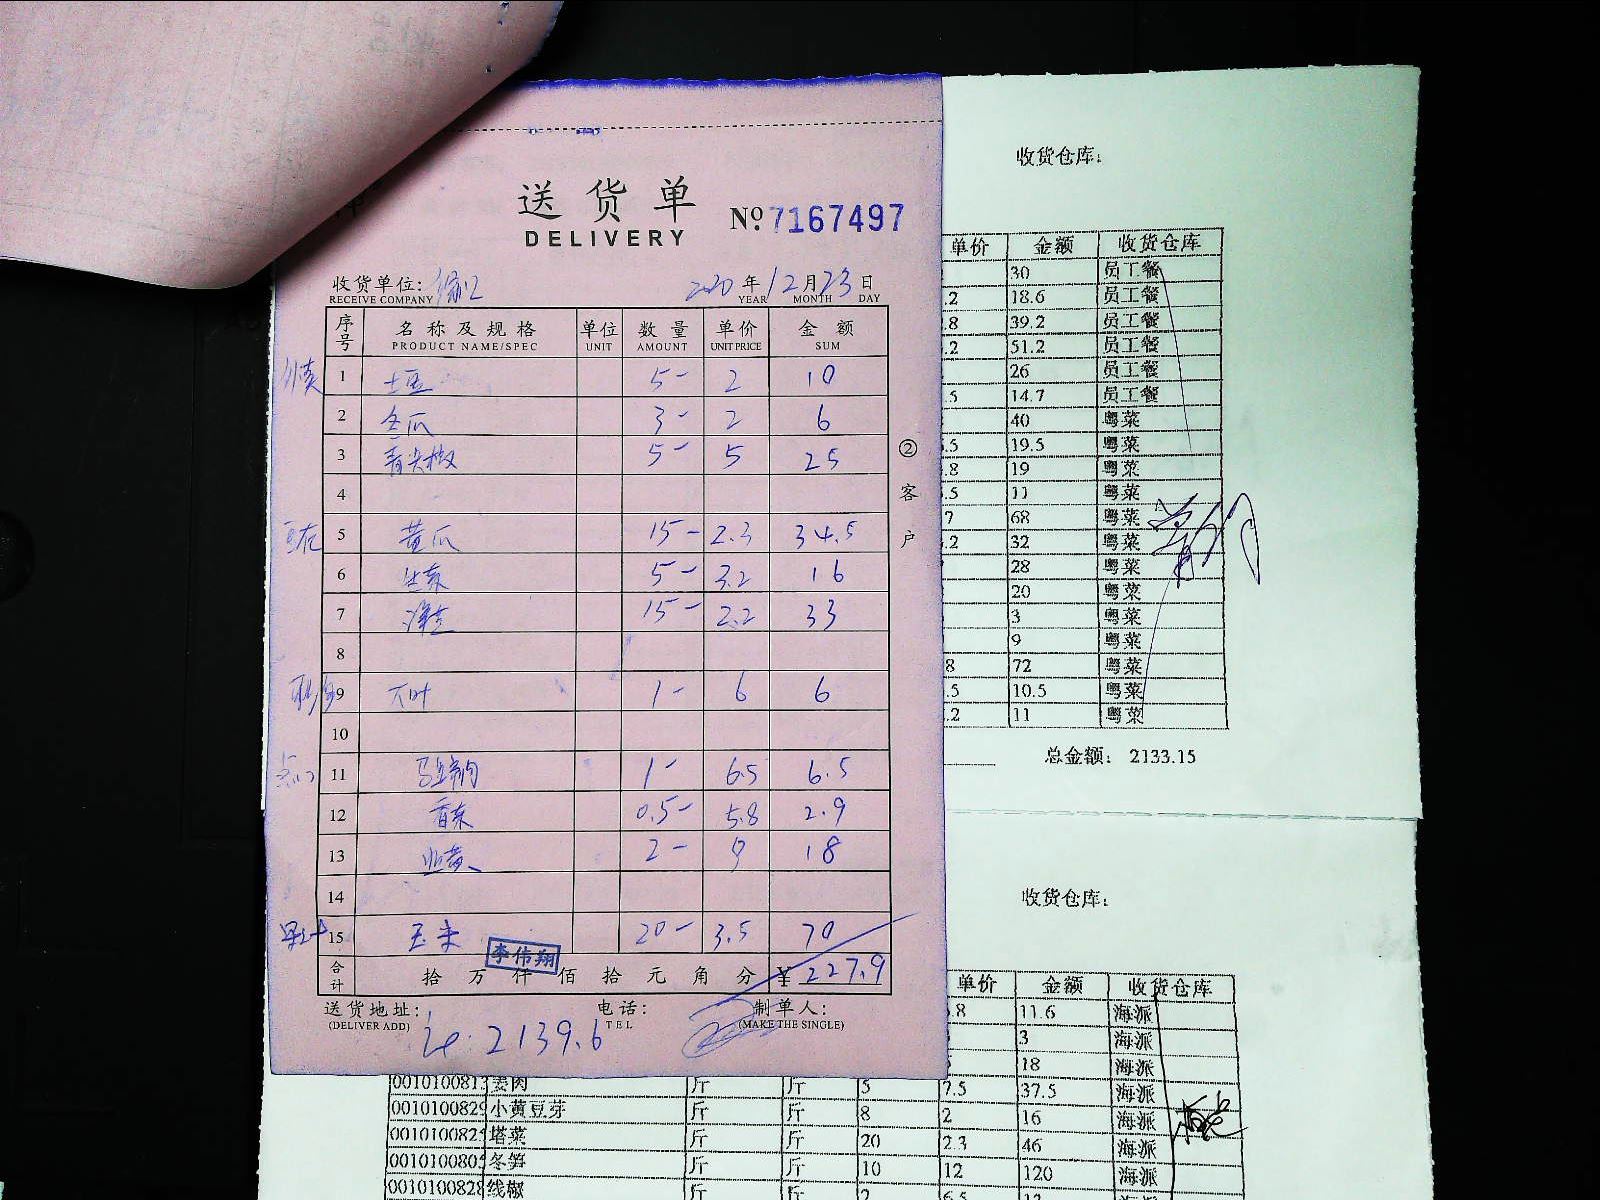 送货单
DELIVERY
№ 7167497
收货单位:
2020年12月23日
RECEIVE COMPANY YEAR MONTH DAY
序号 名称及规格 单位 数量 单价 金额
PRODUCT NAME/SPEC UNIT AMOUNT UNIT PRICE SUM
1 土豆 5- 2 10
2 冬瓜 3- 2 6
3 青尖椒 5- 5 25
4
5 黄瓜 15- 2.3 34.5
6 5- 3.2 16
7 洋芋 15- 2.2 33
8
9 1- 6 6
10
11 1- 6.5 6.5
12 香菜 0.5- 5.8 2.9
13 韭黄 2- 9 18
14
15 玉米 20- 3.5 70
李伟翔
合计 拾 万 仟 佰 拾 元 角 分 ¥ 227.9
送货地址: 电话: 制单人:
(DELIVER ADD) TEL (MAKE THE SINGLE)
2139.6
②客户
收货仓库:
单价 金额 收货仓库
30 员工餐
.2 18.6 员工餐
.8 39.2 员工餐
.2 51.2 员工餐
26 员工餐
.5 14.7 员工餐
40 粤菜
.5 19.5 粤菜
.8 19 粤菜
.5 11 粤菜
7 68 粤菜
.2 32 粤菜
28 粤菜
20 粤菜
3 粤菜
9 粤菜
8 72 粤菜
.5 10.5 粤菜
.2 11 粤菜
总金额: 2133.15
收货仓库:
单价 金额 收货仓库
.8 11.6 海派
3 海派
18 海派
0010100813 素肉 斤 斤 5 7.5 37.5 海派
0010100829 小黄豆芽 斤 斤 8 2 16 海派
0010100825 塔菜 斤 斤 20 2.3 46 海派
0010100805 冬笋 斤 斤 10 12 120 海派
0010100828 线椒 斤 斤 2 6.5 13 海派